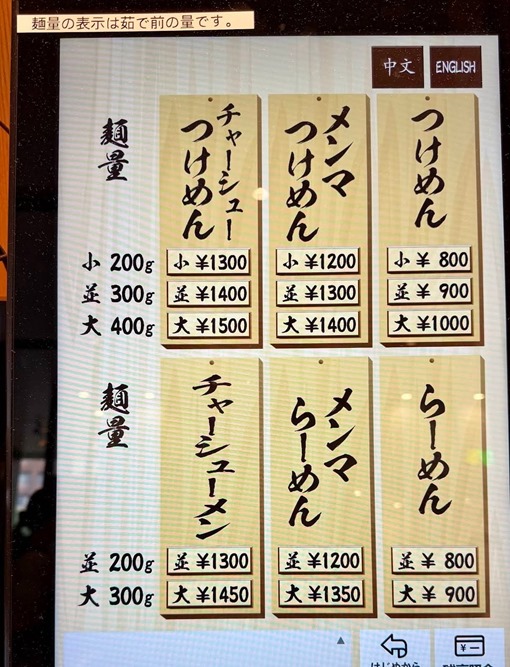 麺量の表示は茹で前の量です。
中文
ENGLISH
つけめん
小 ¥ 800
並 ¥ 900
大 ¥1000
メンマ
つけめん
小 ¥1200
並 ¥1300
大 ¥1400
チャーシュー
つけめん
小 ¥1300
並 ¥1400
大 ¥1500
麺量
小 200g
並 300g
大 400g
らーめん
並 ¥ 800
大 ¥ 900
メンマ
らーめん
並 ¥1200
大 ¥1350
チャーシューメン
並 ¥1300
大 ¥1450
麺量
並 200g
大 300g
はじめから